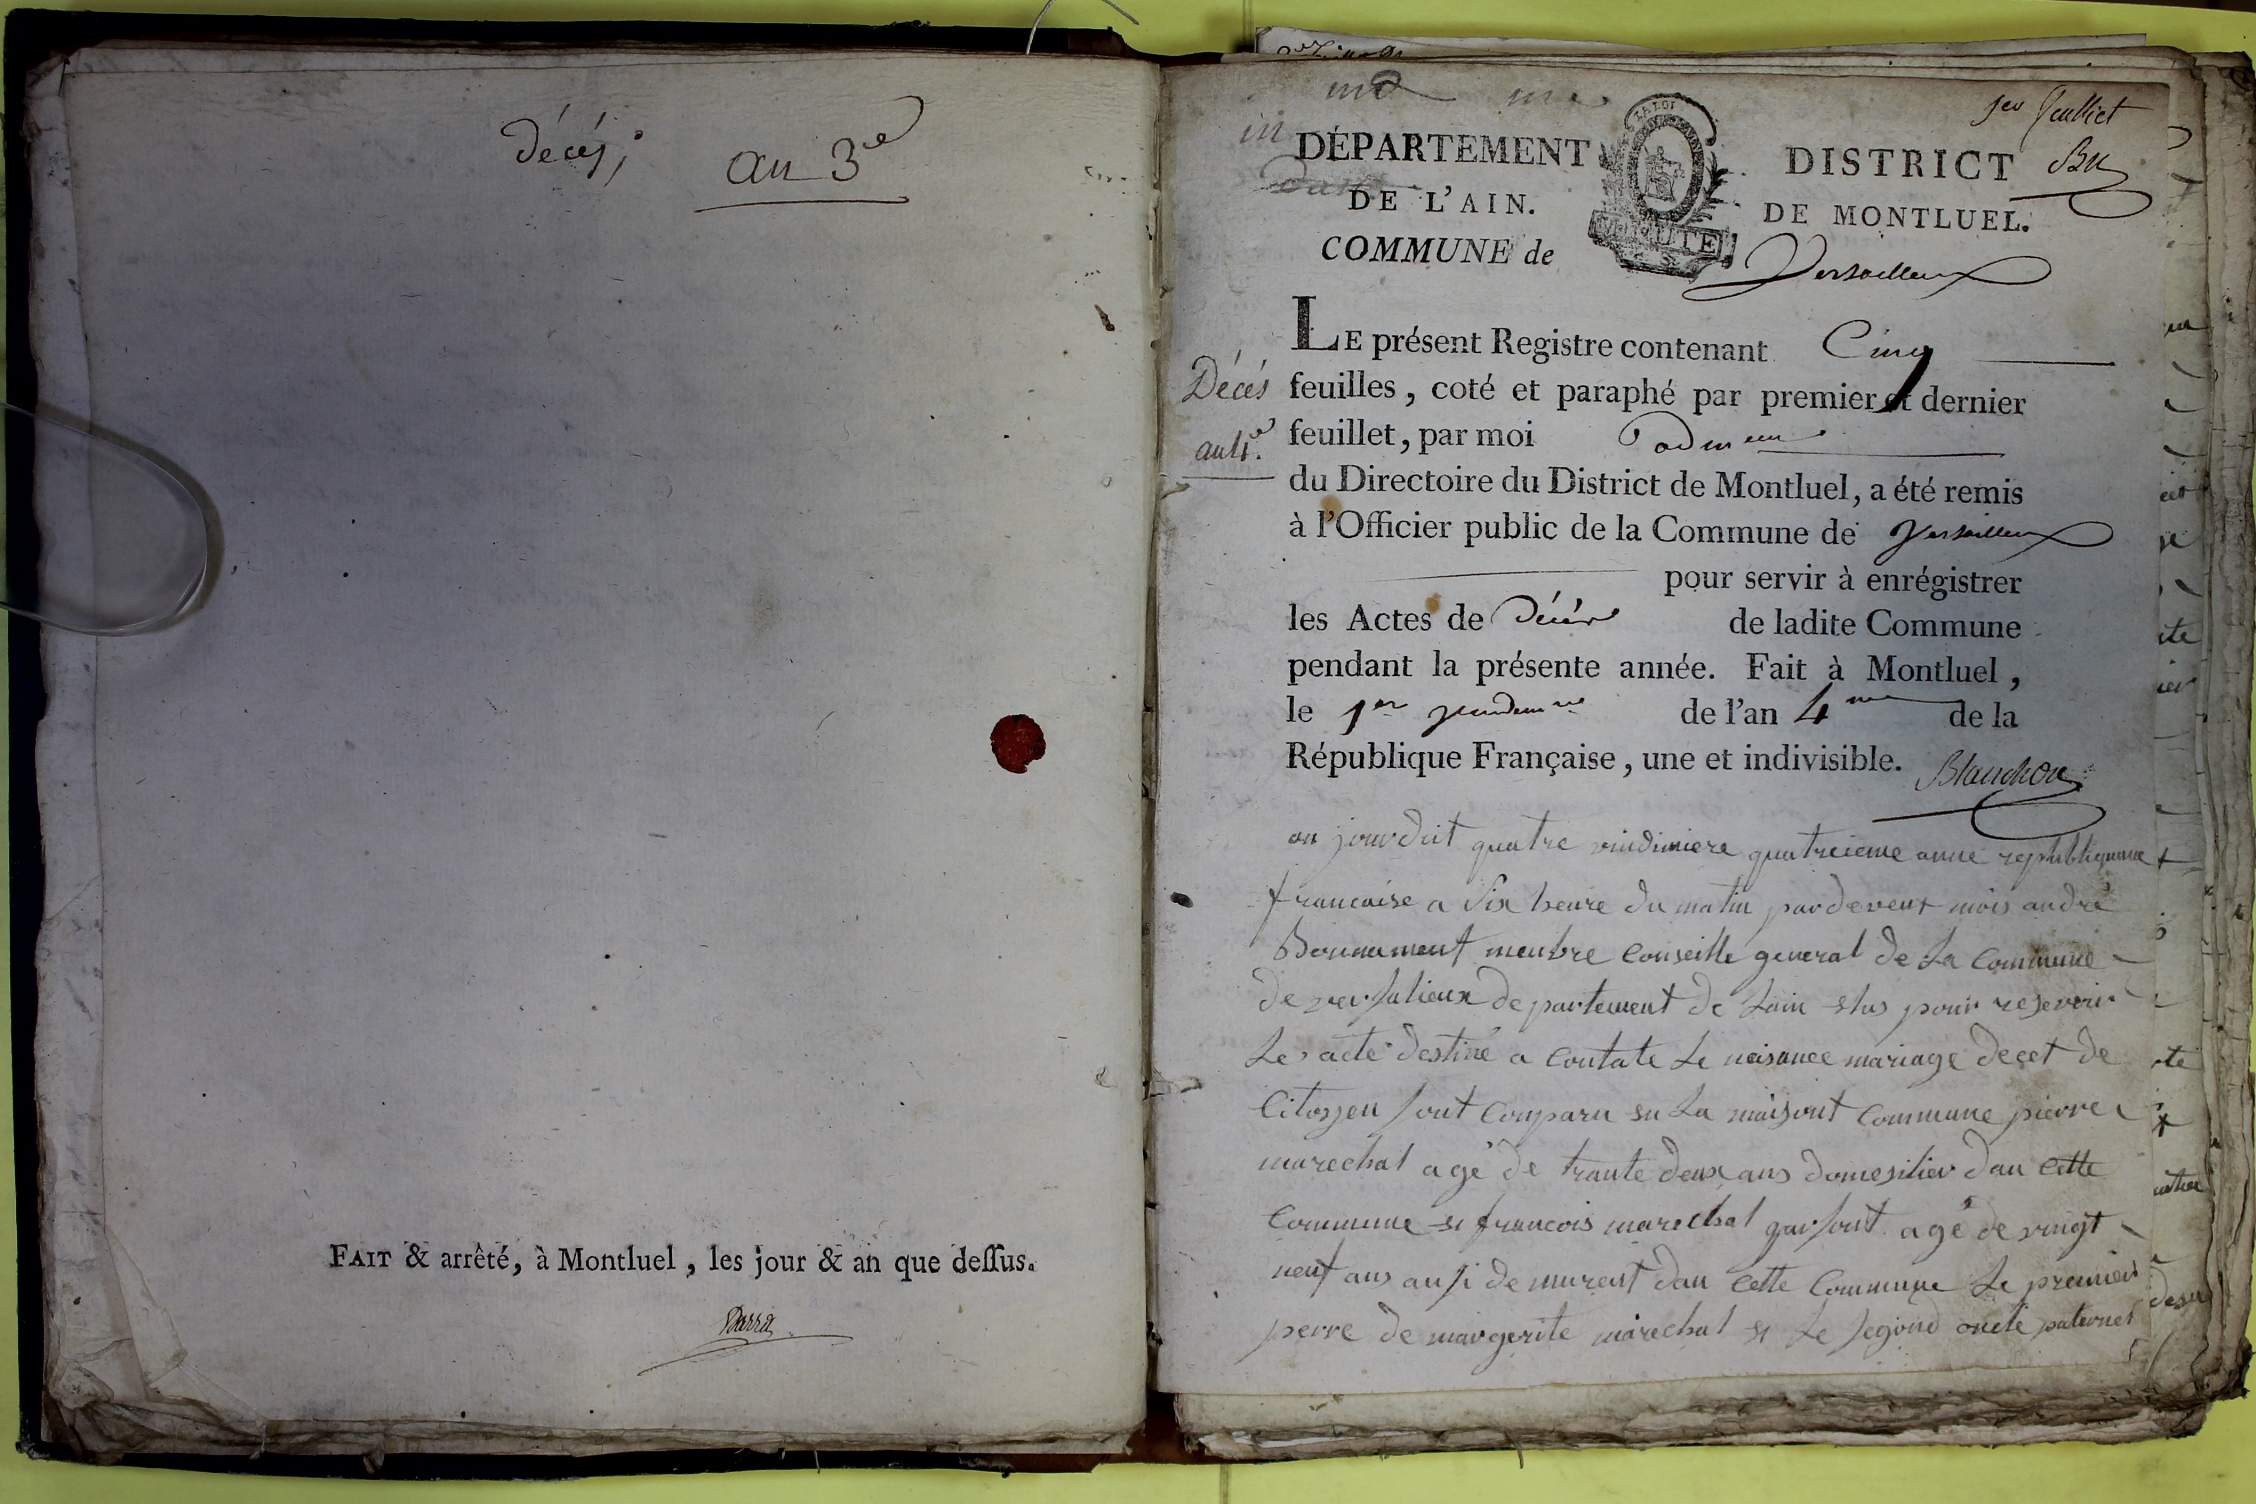 Décés,
an 3e
FAIT & arrêté, à Montluel, les jour & an que deſſus.
Barra
1er feulliet
DÉPARTEMENT
DE L'AIN.
COMMUNE de
LA LOI
DISTRICT
DE MONTLUEL.
Versailleux
Décés
an 4e.
LE présent Registre contenant Cinq
feuilles, coté et paraphé par premier et dernier
feuillet, par moi
du Directoire du District de Montluel, a été remis
à l'Officier public de la Commune de Versailleux
pour servir à enrégistrer
les Actes de Décès de ladite Commune
pendant la présente année. Fait à Montluel,
le 1er vendemre de l'an 4me de la
République Française, une et indivisible.
Blanchon
au jourduit quatre vindimiere quatreieme anne republiquenne
francaise a six heure du matin pardevent mois andré
Bonnement menbre conseille general de la commune
de versalieux departement de lain elus pour reservoir
les acte destiné a contate le naisance mariage decet de
citoyen sont comparu en la maisont commune pierre
marechal agé de trante deux ans domesilier dan cette
commune et francois marechal garsont agé de vingt
neuf ans ausi demurent dan cette commune le premier
perre de margerite marechal et le segond oncle paternel